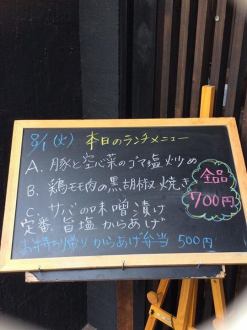 8/1(火) 本日のランチメニュー
A. 豚と空心菜のゴマ塩炒め
B. 鶏モモ肉の黒胡椒焼き
C. サバの味噌漬け
定番 旨塩からあげ
全品
700円
お持ち帰り からあげ弁当 500円